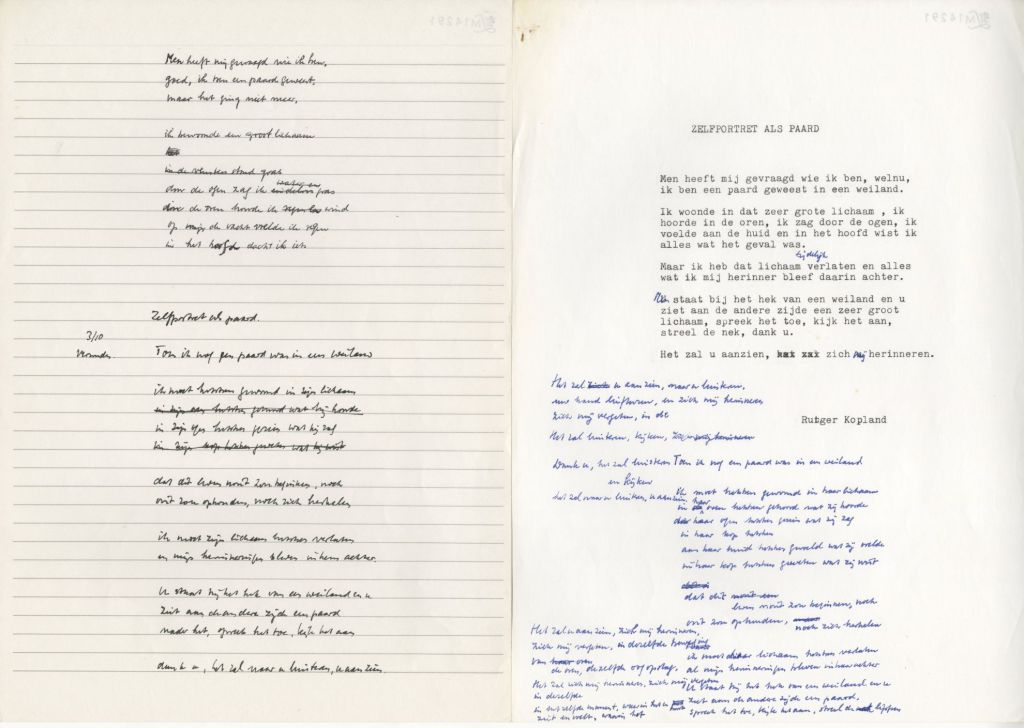 Men heeft mij gevraagd wie ik ben,
goed, ik ben een paard geweest,
maar het ging niet meer.
ik bewoonde een groot lichaam
in de
door de ogen zag ik eindeloos gras
door de oren hoorde ik wind
op mijn de vacht voelde ik regen
in het hoofd dacht ik iets
Zelfportret als paard.
3/10
Toen ik nog een paard was in een weiland
ik moet hebben gewoond in zijn lichaam
in zijn oren hebben gehoord wat hij hoorde
in zijn ogen hebben gezien wat hij zag
in zijn kop hebben geweten wat hij wist
dat dit leven nooit zou beginnen, noch
ooit zou ophouden, noch zich herhalen
ik moet zijn lichaam hebben verlaten
en mijn herinneringen bleven in hem achter.
U staat bij het hek van een weiland en u
ziet aan de andere zijde een paard
nader het, spreek het toe, kijk het aan
dank u, het zal naar u luisteren, u aanzien
M14291
ZELFPORTRET ALS PAARD
Men heeft mij gevraagd wie ik ben, welnu,
ik ben een paard geweest in een weiland.
Ik woonde in dat zeer grote lichaam , ik
hoorde in de oren, ik zag door de ogen, ik
voelde aan de huid en in het hoofd wist ik
alles wat het geval was.
tijdelijk
Maar ik heb dat lichaam verlaten en alles
wat ik mij herinner bleef daarin achter.
Men staat bij het hek van een weiland en u
ziet aan de andere zijde een zeer groot
lichaam, spreek het toe, kijk het aan,
streel de nek, dank u.
Het zal u aanzien, zich mij herinneren.
Rutger Kopland
Het zal u aanzien, naar u luisteren,
uw hand en zich mij herinneren
zich mij vergeten, in de
Het zal luisteren, kijken, zich mij herinneren
Dank u, het zal luisteren
en kijken
het zal naar u luisteren, u aanzien,
Toen ik nog een paard was in een weiland
ik moet hebben gewoond in haar lichaam
in haar oren hebben gehoord wat zij hoorde
door haar ogen hebben gezien wat zij zag
in haar kop hebben
aan haar huid hebben gevoeld wat zij voelde
in haar kop hebben geweten wat zij wist
dat dit
leven nooit zou beginnen, noch
ooit zou ophouden, noch zich herhalen
ik moet haar lichaam hebben verlaten
al mijn herinneringen bleven in haar achter
U staat bij het hek van een weiland en u
ziet aan de andere zijde een paard,
spreek het toe, kijk het aan, streel de
Het zal u aanzien, zich mij herinneren,
zich mij vergeten, in dezelfde
van
de oren, dezelfde oogopslag.
Het zal zich mij herinneren, zich mij vergeten
in dezelfde
in hetzelfde moment, waarin het
ziet en voelt, waarin het